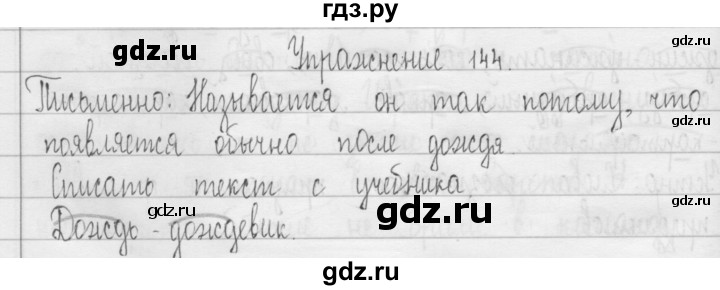 гдз.ру
gdz.ru gdz.ru
Упражнение 144.
Письменно: Называется он так потому, что
gdz.ru gdz.ru
появляется обычно после дождя.
Списать текст с учебника.
gdz.ru gdz.ru
Дождь - дождевик.
gdz.ru gdz.ru